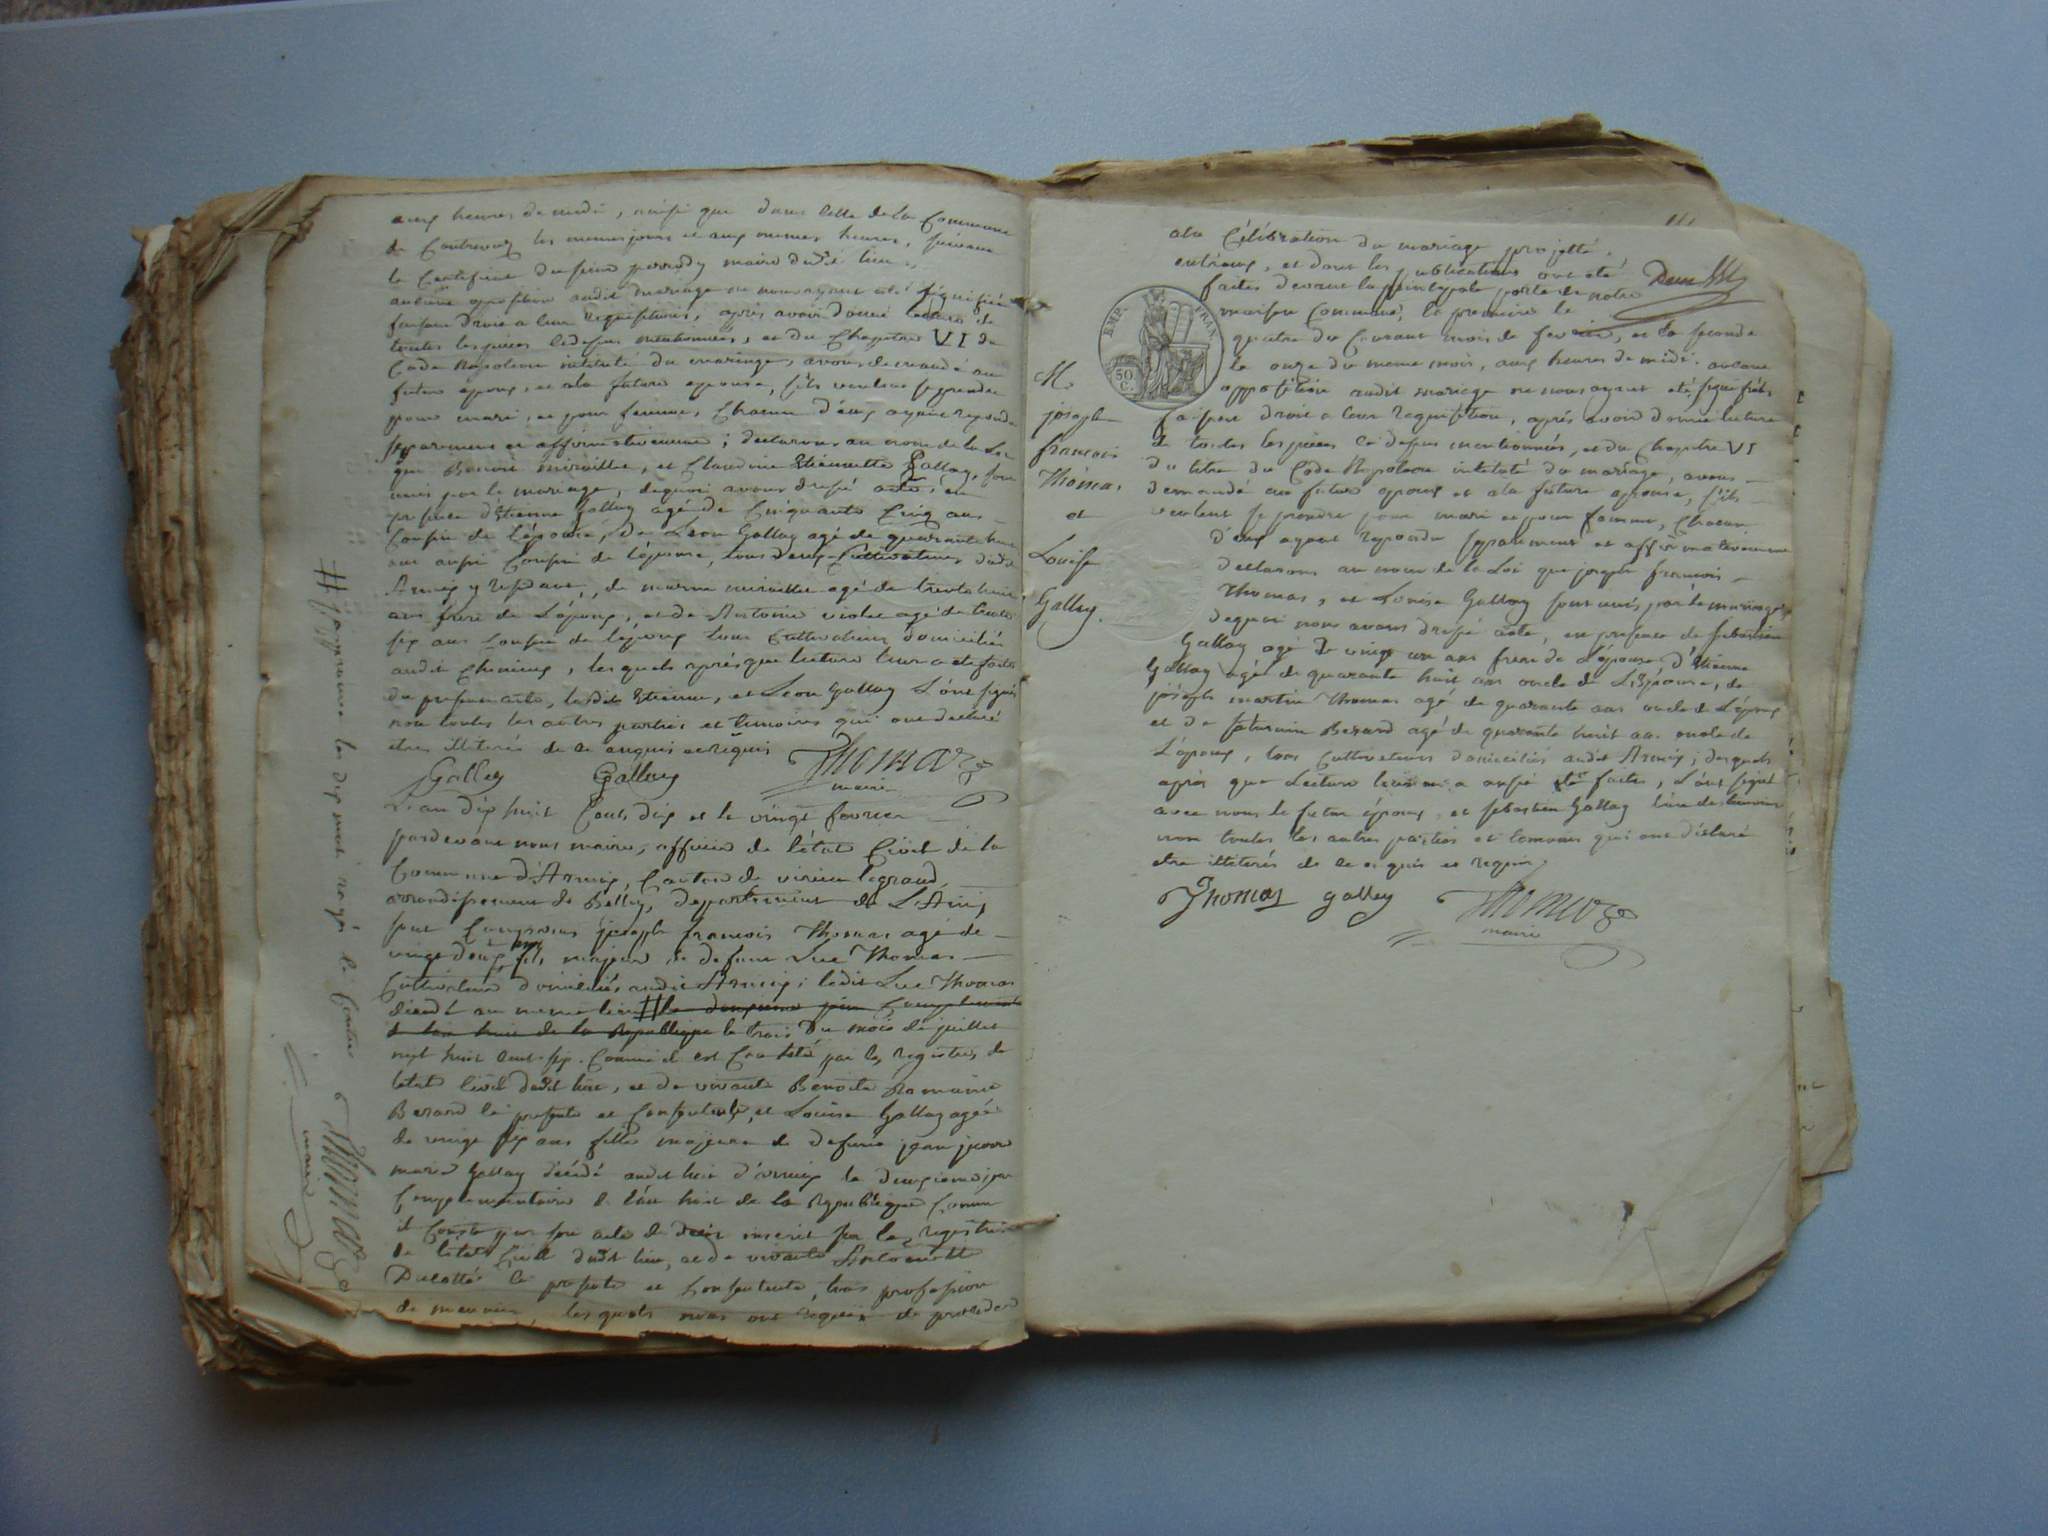 aux heures de midi, ainsi que dans celle de la Commune
de Contrevoz les memes jours et aux memes heures, suivant
le Certificat du sieur perrody maire dudit lieu,
aucune opposition audit mariage ne nous ayant été signifiée
faisant droit a leur requisitions, après avoir donné lecture de
toutes les pièces cidessus mentionnées, et du Chapitre VI du
Code Napoleon intitulé du mariage, avons demandé au
futur époux, et ala future epouse, s'ils veulent se prendre
pour mari, et pour femme, Chacun d'eux ayant repondu
separement et affirmativement; declarons au nom de la Loi
que Benoit miraillet, et Claudine Etiennette Gallay, sont
unis par le mariage, dequoi avons dressé acte, en
presence d'Etienne Gallay agé de Cinquante Cinq ans
Cousin de l'épouse, De Leon Gallay agé de quarante huit
ans aussi Cousin de l'épouse, tous deux Cultivateurs dudit
Arnix y residant, de miraillet agé de trente huit
ans frere de L'époux, et de Antoine violet agé de trente
six ans Cousin de l'époux tous Cultivateurs domiciliés
audit Cheniens, lesquels après que lecture leur a eté faite
du present acte, lesdits Etienne, et Leon Gallay L'ont signé
non toutes les autres parties et temoins qui ont declaré
etre illiterés de ce enquis et requis
Galley Gallay Thomas
maire
L'an dix huit Cents dix et le vingt fevrier
pardevant nous maire, officier de l'état Civil de la
Commune d'Arnix, Canton de virieu legrand
arrondissement de Belley, departement de L'Ain,
sont Comparus joseph francois Thomas agé de
vingt deux ans fils majeur de defunt Luc Thomas
Cultivateur domicilié audit Arnix; ledit Luc Thomas
décédé au meme lieu # le deuxieme jour Complementaire
de lan huit de la Republique le trois Du mois de juillet
mil huit Cent six. Comme il est Constaté par les registres de
létat Civil dudit lieu, et de vivante Benoite Romaine
Berard ici presente et Consentante, et Louise Gallay agée
de vingt six ans fille majeure de defunt jean pierre
marie Gallay décédé audit lieu d'arnix le deuxieme jour
Complementaire de l'an huit de la Republique Comme
il Conste par son acte de décès inscrit sur les registres
de létat Civil dudit lieu, et de vivante
Ducotté ici presente et Consentante, tous profession
de meunier, lesquels nous ont requis de proceder
# j'approuve les dix mots rayés ci Contre
Thomas
maire
ala Célébration du mariage projetté
entreux, et dont les publications ont été
faites devant la principale porte de notre
maison Commune, la premiere le
quatre du Courant mois de fevrier, et la seconde
le onze du meme mois, aux heures de midi. aucune
opposition audit mariage ne nous ayant eté signifiée,
faisant droit a leur requisition, aprés avoir donné lecture
de toutes les pièces ci dessus mentionnées, et du Chapitre VI
du titre du Code Napoleon intitulé du mariage, avons
demandé au futur epoux et ala future epouse, s'ils
veulent se prendre pour mari et pour femme, Chacun
d'eux ayant repondu separement et affirmativement
declarons au nom de la Loi que joseph francois
Thomas, et Louise Gallay sont unis par le mariage
dequoi nous avons dressé acte, en presence de sebastien
Gallay agé de vingt un ans frere de L'épouse, d'Etienne
Gallay agé de quarante huit ans oncle de L'épouse, de
joseph martin Thomas agé de quarante ans oncle de L'époux
et de saturnin Berard agé de quarante huit ans oncle de
L'époux, tous Cultivateurs domiciliés audit Arnix; lesquels
après que Lecture leur en a aussi été faite, L'ont signé
avec nous le futur époux, et sebastien Gallay l'un des temoins
non toutes les autres parties et temoins qui ont déclaré
etre illiterés de ce enquis et requis.
Thomas galley Thomas
maire
EMP. FRAN.
50 C.
M.
joseph
francois
Thomas
et
Louise
Gallay.